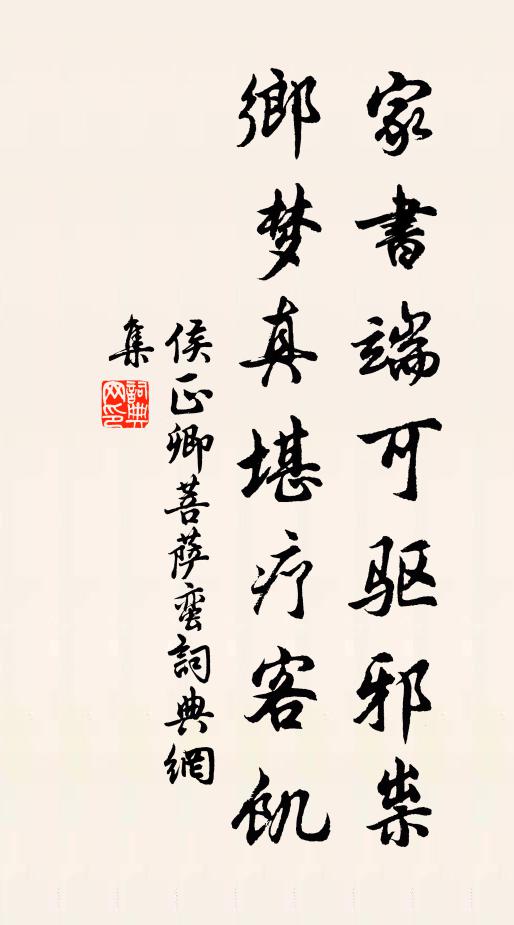 家書端可驱邪祟
鄉梦真堪疗客飢
侯正卿菩萨蛮詞典網
集
詞典
网印